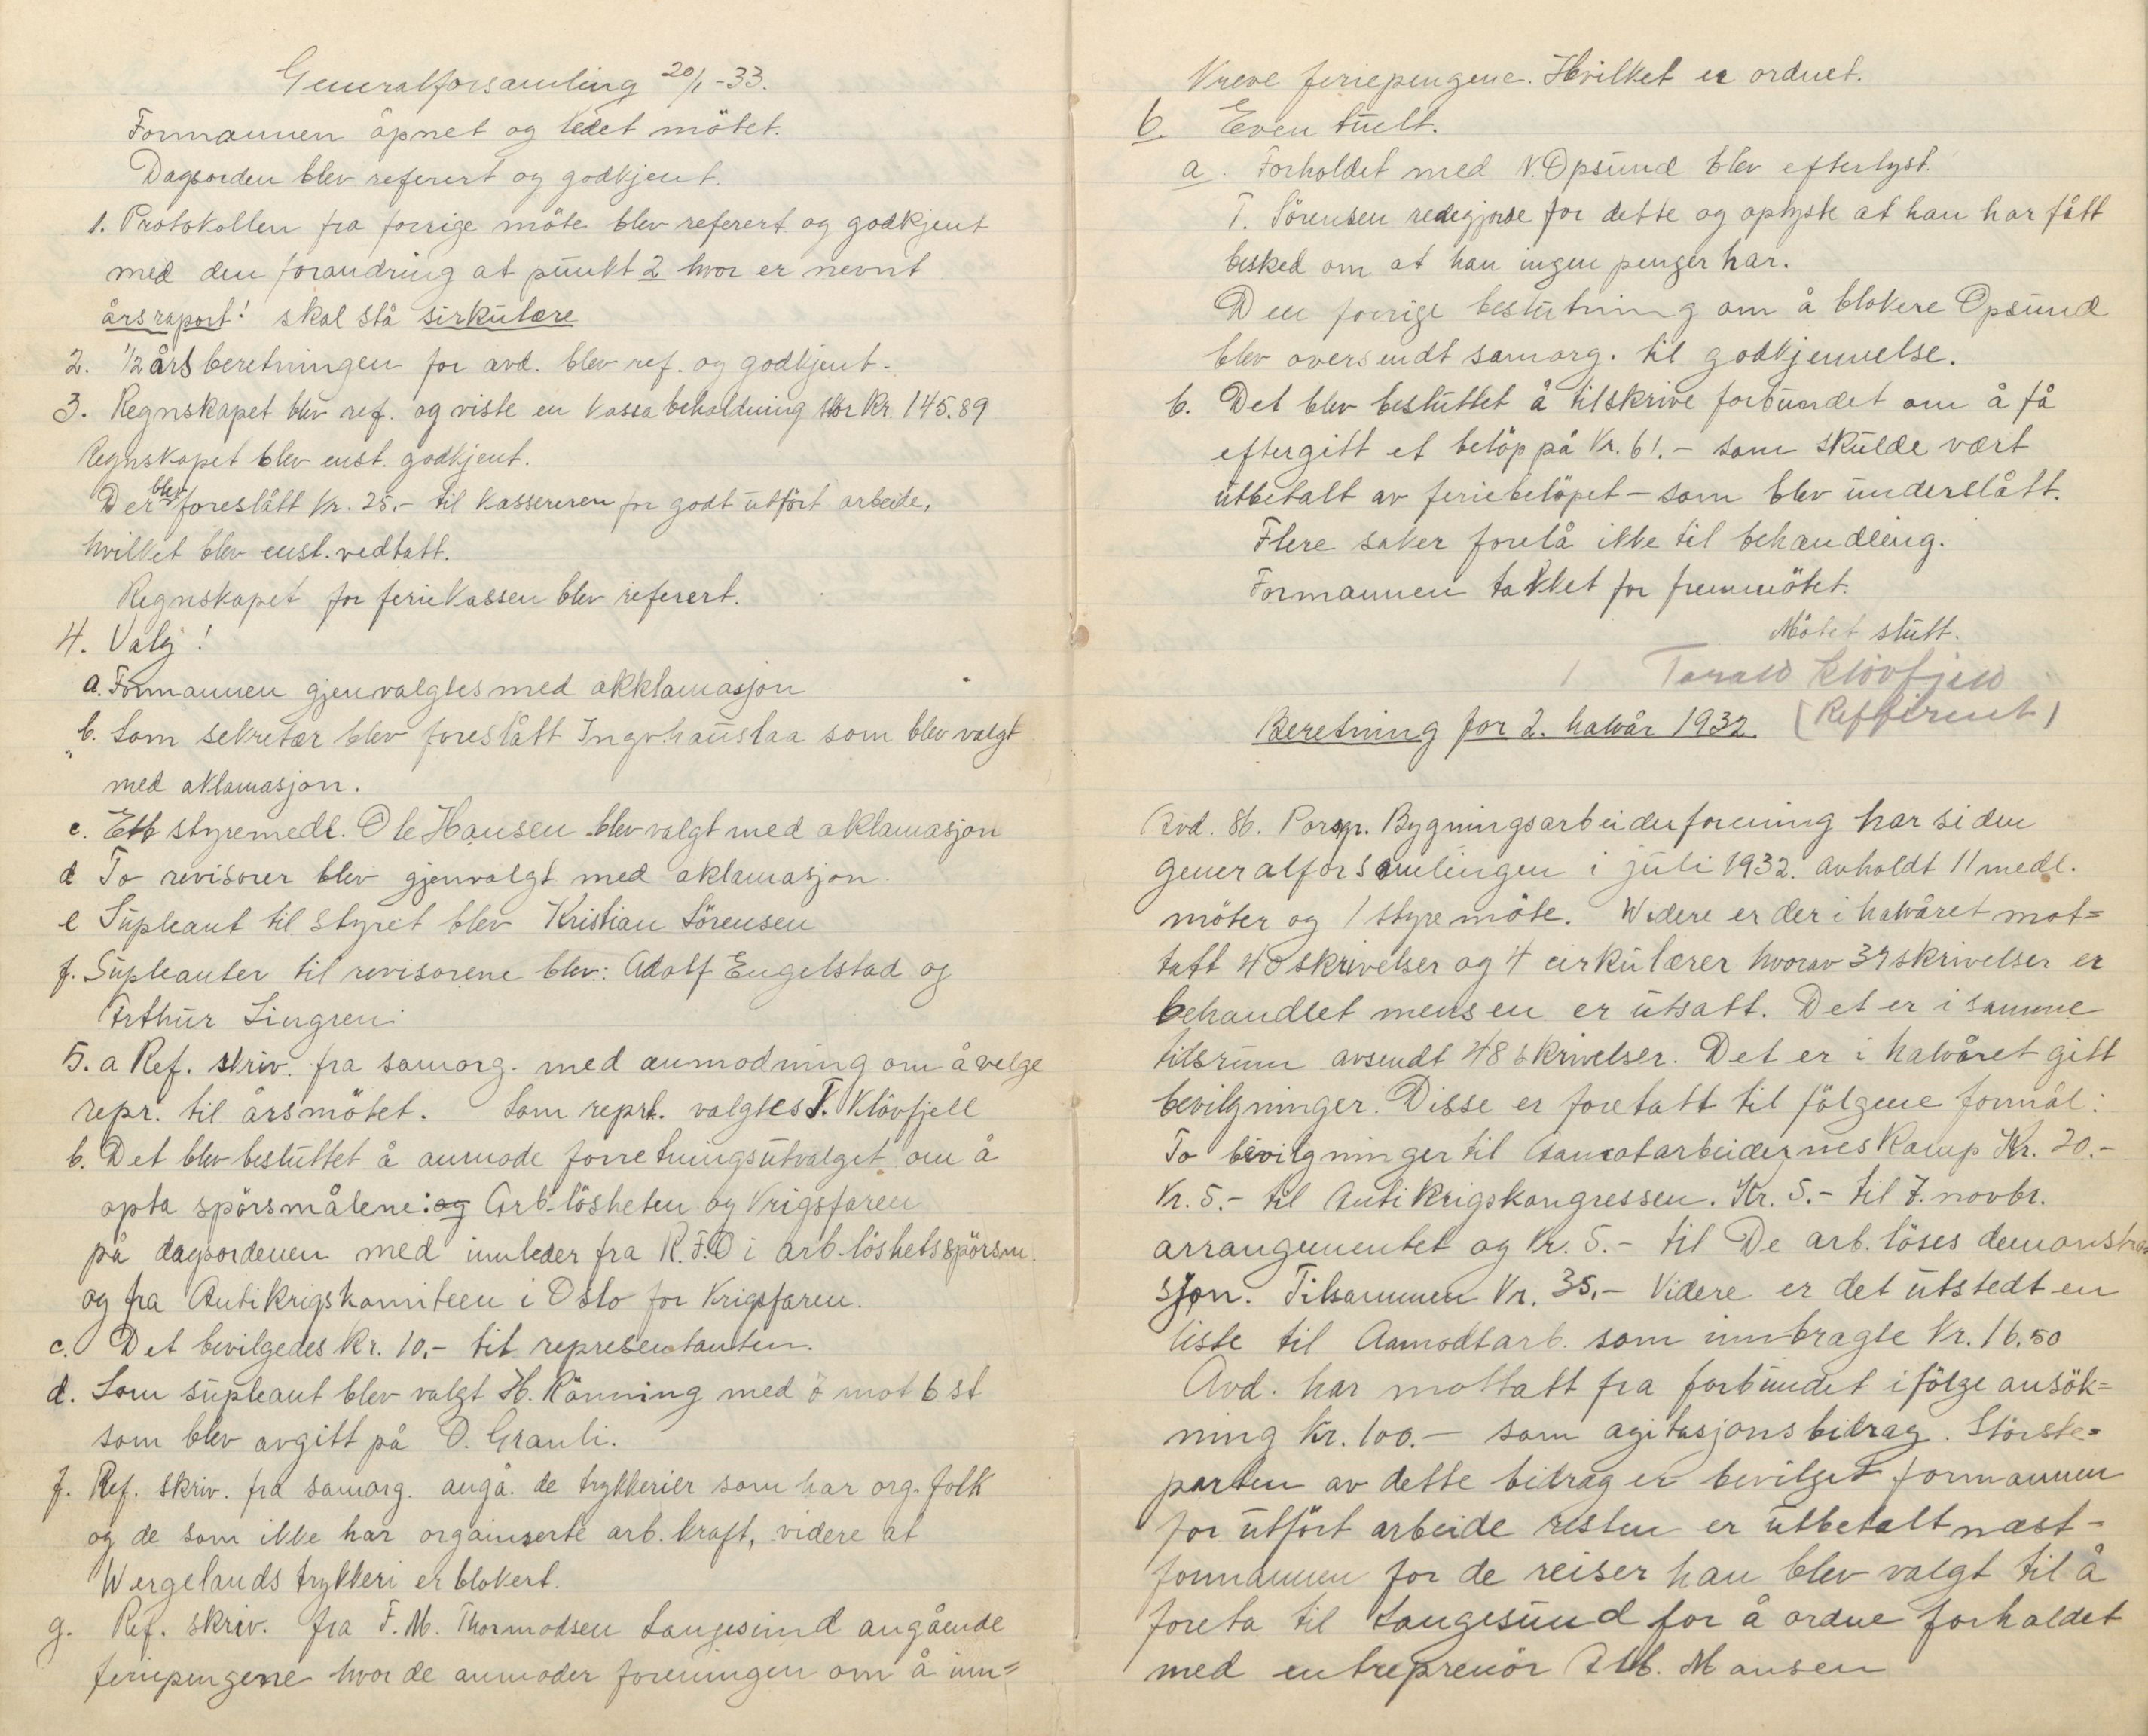 Generalforsamling 20/1-33.
Formannen åpnet og ledet mötet.
Dagsorden blev referert og godkjent.
1. Protokollen fra forrige möte blev referert og godkjent
med den forandring at punkt 2 hvor er nevnt
årsraport! skal stå sirkulære
2. 1/2 årsberetningen for avd. blev ref. og godkjent.
3. Regnskapet blev ref. og viste en kassabeholdning stor Kr. 145.89
Regnskapet blev enst. godkjent.
Der blev foreslått Kr. 25.- til kassereren for godt utfört arbeide,
hvilket blev enst. vedtatt.
Regnskapet for feriekassen blev referert.
4. Valg!
a. Formannen gjenvalgtes med akklamasjon
b. Som sekretær blev foreslått Ingv. haustaa som blev valgt
med aklamasjon.
c. Ett styremedl. Ole Hansen blev valgt med aklamasjon
d To revisorer blev gjenvalgt med aklamasjon.
e Supleant til styret blev Kristian Sörensen
f. Supleanter til revisorene blev: Adolf Engelstad og
Arthur Lingren
5. a Ref. skriv. fra samorg. med anmodning om å velge
repr. til årsmötet. Som reprt. valgtes T. Klövfjell
b. Det blev besluttet å anmode forretningsutvalget om å
opta spörsmålene: og Arb-lösheten og Krigsfaren
på dagsordenen med innleder fra R.F.O i arb-löshetsspörsm.
og fra Antikrigskomiteen i Oslo for Krigsfaren.
c. Det bevilgedes Kr. 10.- til representanten.
d. Som supleant blev valgt H. Rönning med 8 mot 6 st
som blev avgitt på O. Grauli.
f. Ref. skriv. fra samorg. angå. de trykkerier som har org. folk
og de som ikke har organiserte arb. kraft, videre at
Wergelands trykkeri er blokert.
g. Ref. skriv. fra F. M. Thormodsen Langesund angående
feriepengene hvor de anmoder foreningen om å inn=
kreve feriepengene. Hvilket er ordnet.
6. Eventuelt.
a. Forholdet med N. Opsund blev efterlyst.
T. Sörensen redegjorde for dette og oplyste at han har fått
besked om at han ingen penger har.
Den forrige beslutning om å blokere Opsund
blev oversendt samorg. til godkjennelse.
b. Det blev besluttet å tilskrive forbundet om å få
eftergitt et belöp på Kr. 61.- som skulde vært
utbetalt av feriebelöpet - som blev underslått.
Flere saker forelå ikke til behandling.
Formannen takket for fremmötet.
Mötet slutt.
Tarald Klövfjeld
(Refferent)
Beretning for 2. halvår 1932.
Avd. 86. Porsgr. Bygningsarbeiderforening har siden
generalforsamlingen i juli 1932. avholdt 11 medl.
möter og 1 styremöte. Videre er der i halvåret mot=
tatt 40 skrivelser og 4 cirkulærer hvorav 39 skrivelser er
behandlet mens en er utsatt. Det er i samme
tidsrum avsendt 48 skrivelser. Det er i halvåret gitt
bevilgninger. Disse er foretatt til fölgene formål:
To bevilgninger til Aamotarbeidernes Kamp Kr. 20.-
Kr. 5.- til Antikrigskongressen. Kr. 5.- til 7. novbr.
arrangementet og Kr. 5.- til De arb.löses demonstra
sjon. Tilsammen Kr. 35.- Videre er det utstedt en
liste til Aamodtarb. som innbragte Kr. 16.50
Avd. har mottatt fra forbundet ifölge ansök=
ning Kr. 100.- som agitasjonsbidrag. Störste=
parten av dette bidrag er bevilget formannen
for utfört arbeide resten er utbetalt næst-
formannen for de reiser han blev valgt til å
foreta til Langesund for å ordne forholdet
med entreprenör Hansen